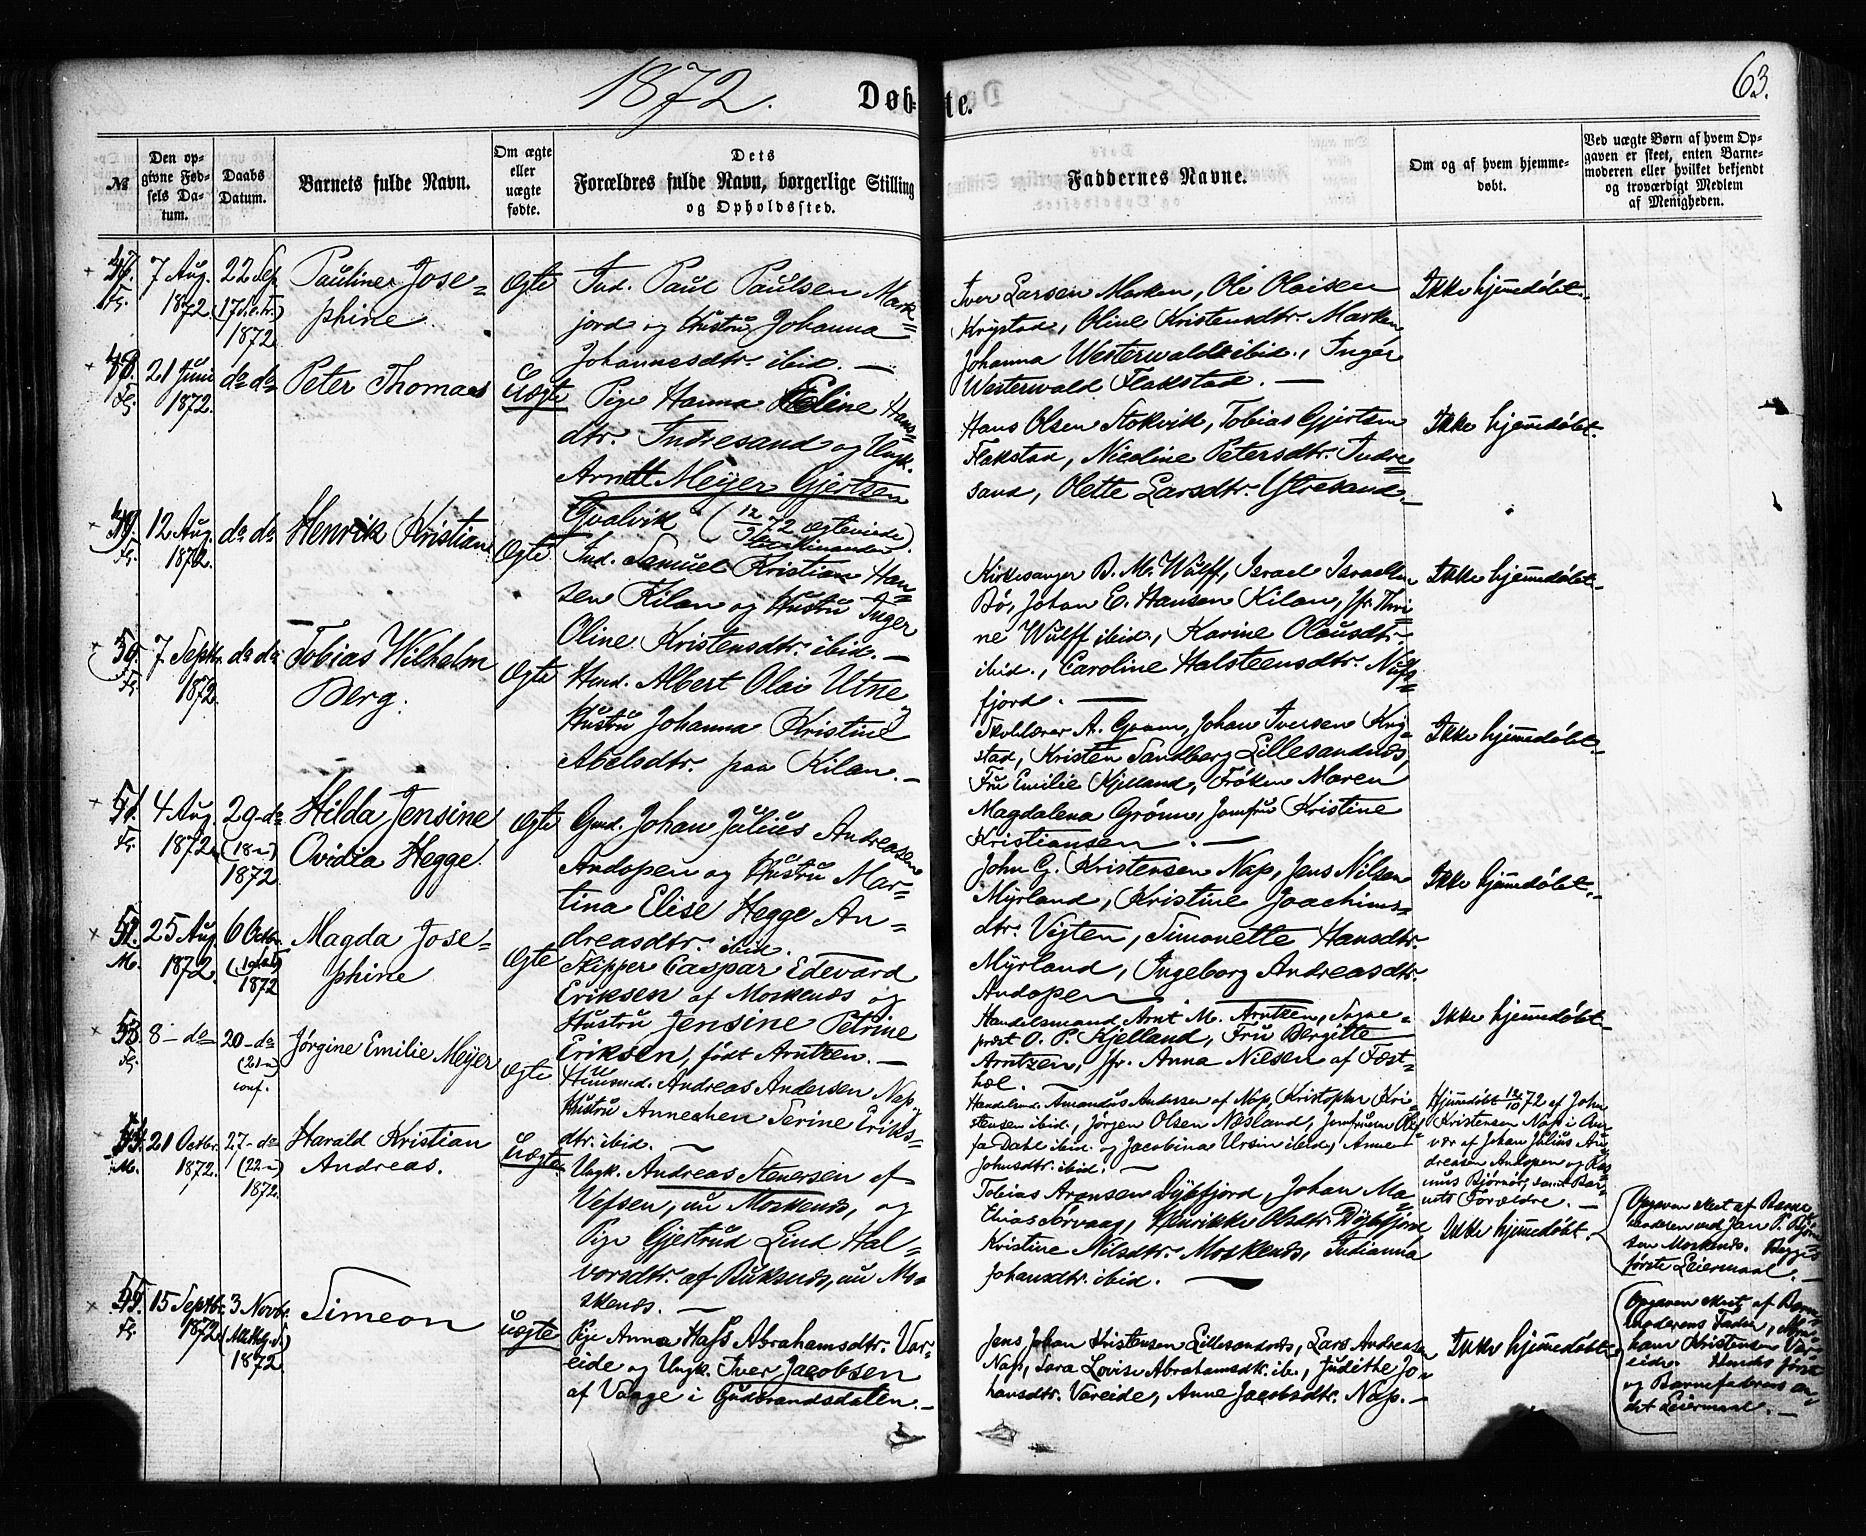 1872.
Døb-te.
63.
№
Den op-
givne Fød-
sels Da-
tum.
Daabs
Datum.
Barnets fulde Navn.
Om ægte
eller
uægte
fødte.
Dets
Forældres fulde Navn, borgerlige Stilling
og Opholdssted.
Faddernes Navne.
Om og af hvem hjemme-
døbt.
Ved uægte Børn af hvem Op-
gaven er skeet, enten Barne-
moderen eller hvilket bekjendt
og troværdigt Medlem
af Menigheden.
7 Aug.
1872
22 Sep
(17 S. e. tr.)
1872
Pauline Jose=
phine.
Ægte
Ind. Paul Paulsen Mark=
jord og Hustru Johanna
Johannesdtr. ibid. —
Iver Larsen Marken, Ole Olaisen
Krystad, Oline Kristensdtr. Marken,
Johanna Westerwald ibid., Inger
Westerwald Flakstad. —
Ikke hjemedøbt.
48.
21 Juni
1872.
do do
Peter Thomas
Uægte
Pige Hanna Eline Hans=
dtr. Indresand og Ungk.
Arndt Meyer Gjertsen
Qvalvik (12/9 72 ægteviede)
Hans Olsen Stokvik, Tobias Gjertsen
Flakstad, Nicoline Petersdtr. Indre=
sand, Olette Larsdtr. Ytresand.
Ikke hjemedøbt.
49.
12 Aug.
1872.
do do
Henrik Kristian
Ægte
Ind. Samuel Kristian Han=
sen Kilan og Hustru Inger
Oline Kristensdtr. ibid. —
Kirkesanger B. M. Wulff, Israel Israelsen
Bø, Johan E. Hansen Kilan, Jfr. Thri=
ne Wulff ibid., Karine Olausdtr.
ibid., Caroline Halsteensdtr. Nufs=
fjord. —
Ikke hjemedøbt.
50.
7 Septbr.
1872.
do do
Tobias Wilhelm
Berg.
Ægte
Hmd. Albert Olai Utne og
Hustru Johanna Kristine
Abelsdtr. paa Kilan. —
Skolelærer A. Grønn, Johan Iversen Kry=
stad, Kristen Sandberg Lillesandnæs,
Fru Emilie Kjelland, Frøken Maren
Magdalena Grønn, Jomfru Kristine
Kristiansen. —
Ikke hjemedøbt.
51.
4 Aug.
1872
29 - do
(18 -)
1872
Hilda Jensine
Ovidia Hegge.
Ægte
Gmd. Johan Julius Andreasen
Andopen og Hustru Mar=
tina Elise Hegge An=
dreasdtr. ibid.
John G. Kristensen Nap, Jens Nilsen
Myrland, Kristine Joachims=
dtr. Vigten, Simonette Hansdtr.
Myrland, Ingeborg Andreasdtr.
Andopen
Ikke hjemedøbt.
52.
M.
25 Aug.
1872.
6 Octbr.
1872
Magda Jose=
phine
Ægte
Skipper Caspar Edevard
Eriksen af Moskenæs og
Hustru Jensine Petrine
Eriksen, født Arntzen. —
Handelsmand Arnt M. Arntzen, Sogne=
præst O. P. Kjelland, Fru Bergitte
Arntzen, Jfr. Anna Nilsen af Fæst=
hæl. —
Ikke hjemedøbt.
53.
8 - do
20 - do
(21 -)
conf.
Jørgine Emilie Meyer
Ægte
Huusmd. Andreas Andersen Nap,
Hustru Annechen Serine Eriks=
dtr. ibid.
Handelsmd. Amandus Andersen af Nap, Kristopher Kri=
stensen ibid., Jørgen Olsen Næsland, Jomfruerne
Dahl ibid. og Jacobina Ursin ibid., Anne
Johnsdtr. ibid. —
Hjemedøbt 12/10 72 af John
Kristensen Nap i Over=
vær af Johan Julius An=
dreasen Andopen og Ras=
mus Bjørnør, samt Bar=
nets Forældre. —
54.
M.
21 Octbr.
1872.
27 - do
(22 -)
1872.
Harald Kristian
Andreas.
Uægte
Ungk. Andreas Stenersen af
Vefsen, nu Moskenæs, og
Pige Gjertrud Lind Hal=
vorsdtr. af Buksnæs, nu Mo=
skenæs. —
Tobias Arensen Dybfjord, Johan Ma=
thias Sørvaag, Henrikke Olsdtr. Dybfjord,
Kristine Nilsdtr. Moskenæs, Indianna
Johansdtr. ibid. —
Ikke hjemedøbt.
Opgaven skeet af Barne=
Moskenæs. Begges
første Leiermaal. —
55.
15 Septbr.
1872
3 Novbr.
1872
Simeon
Uægte
Pige Anna Hafs Abrahamsdtr. Var=
eide og Ungk. Iver Jacobsen
af Vaage i Gudbrandsdalen. —
Jens Johan Kristensen Lillesandnæs, Lars Andreasen
Nap, Sara Lovise Abrahamsdtr. ib., Judithe Jo=
hansdtr. Vareide, Anne Jacobsdtr. Nap. —
Ikke hjemedøbt.
Opgaven skeet af Barne=
moderens Fader, Abra=
ham Kristensen Var=
eide. Hendes første
og Barnefaderens an=
det Leiermaal. —